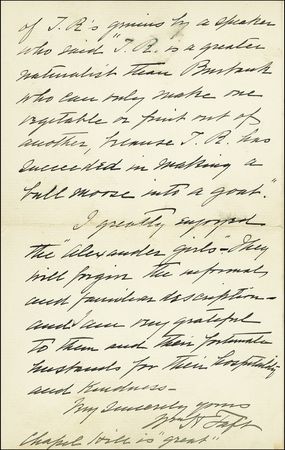 of T.R's genius by a speaker
who said "T.R. is a greater
naturalist than Burbank
who can only make one
vegetable or fruit out of
another, because T.R. has
succeeded in making a
bull moose into a goat."
I greatly enjoyed
the "Alexander girls" - They
will forgive the informal
and familiar description -
and I am very grateful
to them and their fortunate
husbands for their hospitality
and kindness -
Very sincerely yours
Wm H Taft
Chapel Hill is "great"